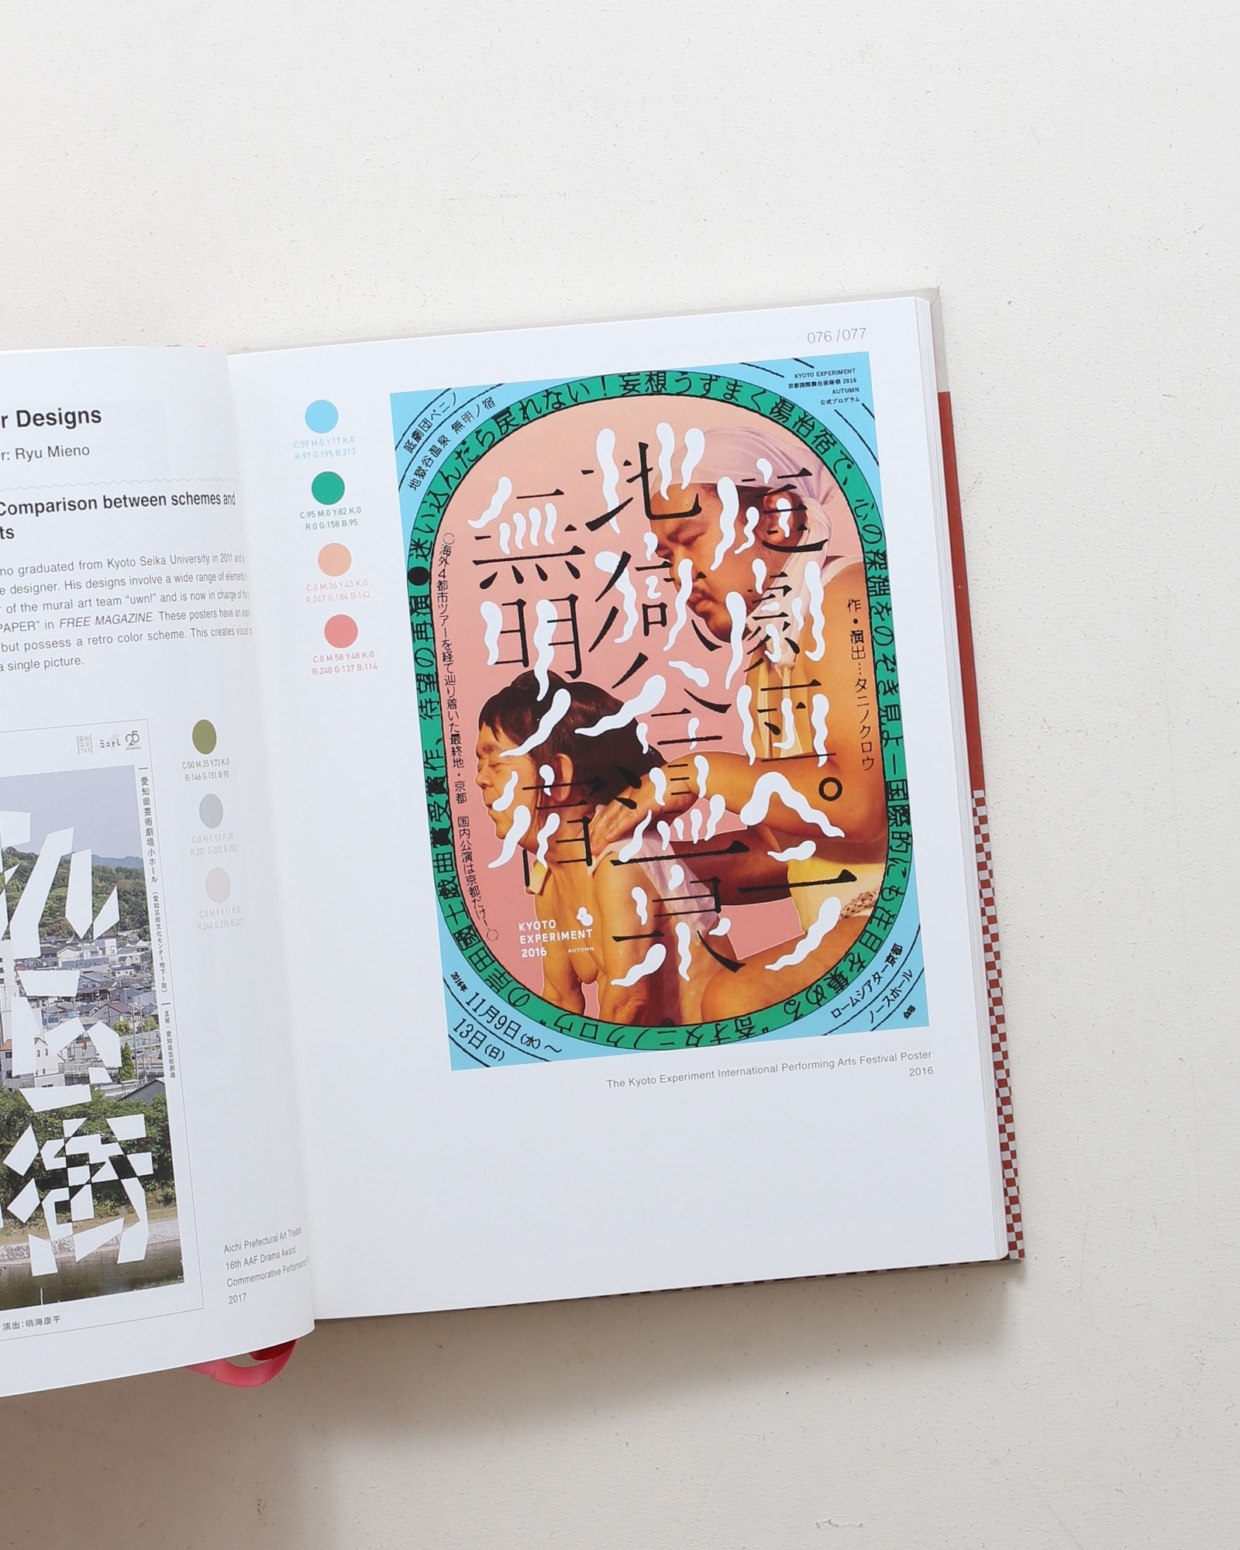 r Designs
r: Ryu Mieno
Comparison between schemes and
ts
no graduated from Kyoto Seika University in 2011
e designer. His designs involve a wide range of
r of the mural art team "uwn!" and is now in charge of
PAPER" in FREE MAGAZINE. These posters have an
but possess a retro color scheme. This creates
a single picture.
ミニトレ
25
愛知県芸術劇場小ホール
演出:鳴海康平
C:50 M:35 Y:73 K:0
R:146 G:151 B:90
Aichi Prefectural Art Theater
16th AAF Drama Award
Commemorative Performance
2017
076 / 077
C:59 M:0 Y:17 K:0
R:97 G:195 B:213
C:95 M:0 Y:82 K:0
R:0 G:158 B:95
C:0 M:36 Y:43 K:0
R:247 G:184 B:142
C:0 M:58 Y:48 K:0
R:240 G:137 B:114
庭劇団ペニノ
地獄谷温泉 無明ノ宿
KYOTO EXPERIMENT
京都国際舞台芸術祭 2016
AUTUMN
公式プログラム
迷い込んだら戻れない!妄想うずまく湯治宿で、心の深淵をのぞき見よ―国際的にも注目を集める"奇才タニノクロウ"の岸田國士戯曲賞受賞作、待望の再演●
庭劇団ペニノ
地獄谷温泉
無明ノ宿
作・演出…タニノクロウ
○海外4都市ツアーを経て辿り着いた最終地・京都 国内公演は京都だけ!○
KYOTO
EXPERIMENT
2016 AUTUMN
2016年
11月9日(水)〜
13日(日)
ロームシアター京都
ノースホール
The Kyoto Experiment International Performing Arts Festival Poster
2016